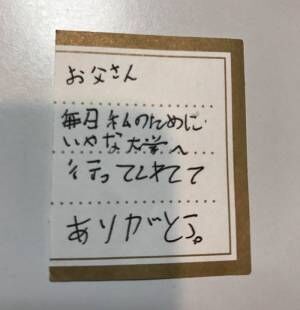 お父さん
毎日私のために
いやな大学へ
行ってくれてて
ありがとう。